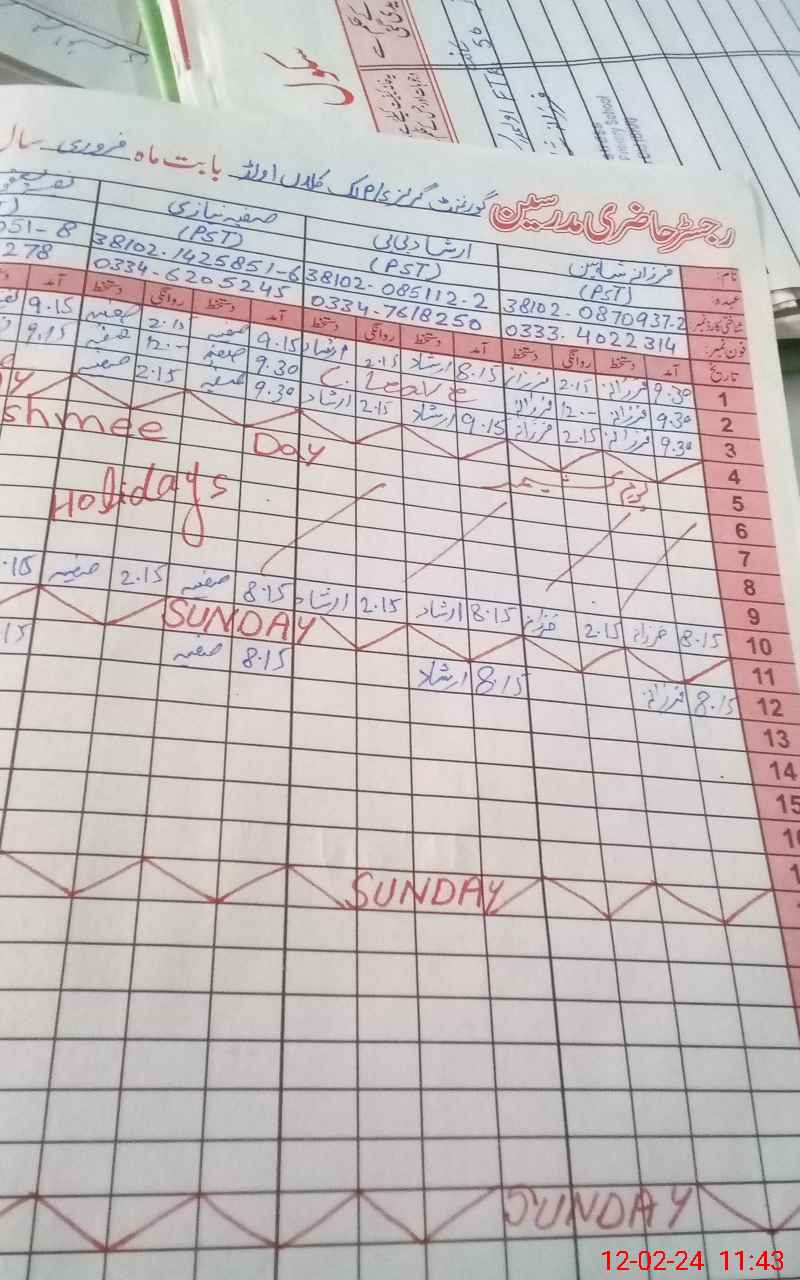 سکول
رجسٹر حاضری مدرسین گورنمنٹ گرلز پرائمری کلاں اولڈ بابت ماہ فروری سال
نام: فرزانہ شاہین ارشاد بی بی صفیہ نیازی
عہدہ: (PST) (PST) (PST)
شناختی کارڈ نمبر 38102-0870937-2 38102-085112-2 38102-1425851-6 051-8
فون نمبر: 0333-4022314 0334-7618250 0334-6205245 278
تاریخ آمد دستخط روانگی دستخط آمد دستخط روانگی دستخط آمد دستخط روانگی دستخط آمد
1 9.30 فرزانہ 2.15 فرزانہ 8.15 ارشاد 2.15 ارشاد 9.15 صفیہ 2.15 صفیہ 9.15
2 9.30 فرزانہ 12.-- فرزانہ C. Leave 9.30 صفیہ 12.-- صفیہ 9.15
3 9.30 فرزانہ 2.15 فرزانہ 9.15 ارشاد 2.15 ارشاد 9.30 صفیہ 2.15 صفیہ
4
5 یوم کشمیر shmee Day
6
7 Holidays
8
9
10 8.15 فرزانہ 2.15 فرزانہ 8.15 ارشاد 2.15 ارشاد 8.15 صفیہ 2.15 صفیہ .15
11 SUNDAY
12 8.15 فرزانہ 8.15 ارشاد 8.15 صفیہ 15
13
14
15
SUNDAY
SUNDAY
12-02-24 11:43